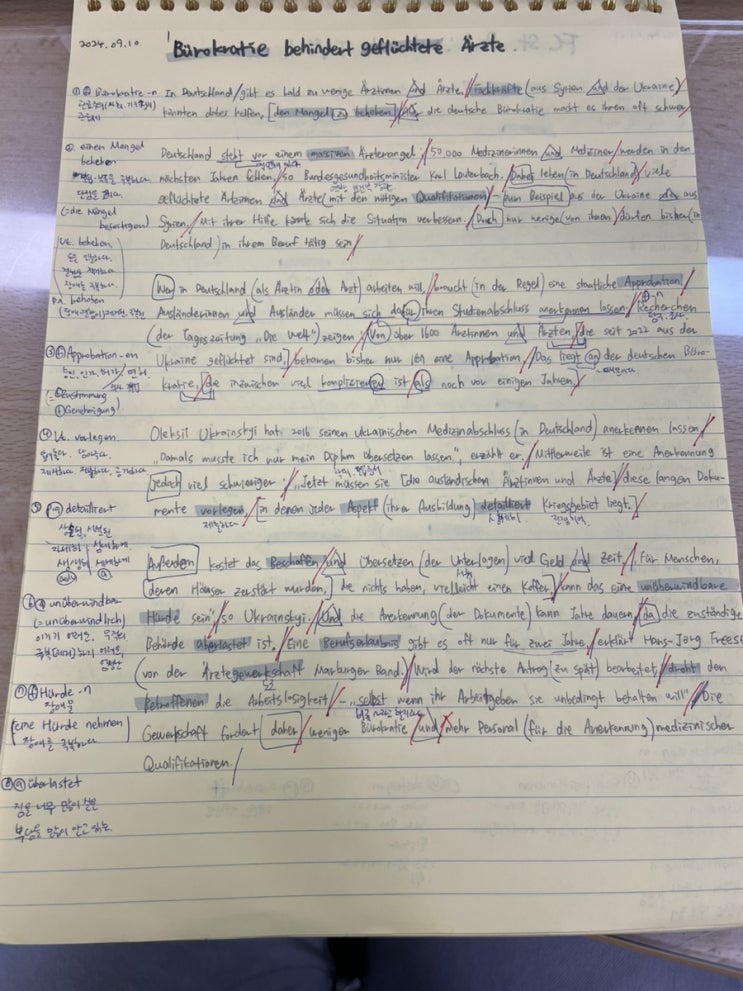 2024.09.10. Bürokratie behindert geflüchtete Ärzte.
① ⓕ Bürokratie -n
In Deutschland gibt es bald zu wenige Ärztinnen und Ärzte. Fachkräfte (aus Syrien und der Ukraine)
könnten dabei helfen, [den Mangel zu beheben]. Aber die deutsche Bürokratie macht es ihnen oft schwer.
② einen Mangel
beheben
(= die Mängel
beseitigen)
vt. beheben
Deutschland steht vor einem massiven Ärztemangel: 50.000 Medizinerinnen und Mediziner werden in den
nächsten Jahren fehlen, so Bundesgesundheitsminister Karl Lauterbach. Dabei leben (in Deutschland) viele
geflüchtete Ärztinnen und Ärzte (mit den nötigen Qualifikationen) – zum Beispiel aus der Ukraine oder aus
Syrien. Mit ihrer Hilfe könnte sich die Situation verbessern. Doch nur wenige (von ihnen) dürfen bisher (in
Deutschland) in ihrem Beruf tätig sein.
p.a. behoben
③ ⓕ Approbation -en
(= Zustimmung
ⓕ Genehmigung)
Wer in Deutschland (als Ärztin oder Arzt) arbeiten will, braucht (in der Regel) eine staatliche Approbation.
Ausländerinnen und Ausländer müssen sich dafür ihren Studienabschluss anerkennen lassen. Recherchen
ⓕ -n
(der Tageszeitung „Die Welt“) zeigen: Von über 1600 Ärztinnen und Ärzten, die seit 2022 aus der
Ukraine geflüchtet sind, bekamen bisher nur 169 eine Approbation. Das liegt an der deutschen Büro-
kratie, die inzwischen viel komplizierter ist als noch vor einigen Jahren.
④ vt. vorlegen
Oleksii Ukrainskyi hat 2016 seinen ukrainischen Medizinabschluss (in Deutschland) anerkennen lassen.
„Damals musste ich nur mein Diplom übersetzen lassen“, erzählt er. Mittlerweile ist eine Anerkennung
jedoch viel schwieriger: „Jetzt müssen sie [die ausländischen Ärztinnen und Ärzte] diese langen Doku-
mente vorlegen, in denen jeder Aspekt (ihrer Ausbildung) detailliert Kriegsgebiet liegt.]
⑤ p.a. detailliert
Außerdem kostet das Beschaffen und Übersetzen (der Unterlagen) viel Geld und Zeit. „für Menschen,
deren Häuser zerstört wurden, die nichts haben, vielleicht einen Koffer, kann das eine unüberwindbare
⑥ ⓐ unüberwindbar
(= unüberwindlich)
Hürde sein“, so Ukrainskyi. Und die Anerkennung (der Dokumente) kann Jahre dauern, da die zuständige
Behörde überlastet ist. Eine Berufserlaubnis gibt es oft nur für zwei Jahre, erklärt Hans-Jörg Freese
(von der Ärztegewerkschaft Marburger Band). Wird der nächste Antrag (zu spät) bearbeitet, droht den
⑦ ⓕ Hürde -n
장애물
(eine Hürde nehmen)
장애를 극복하다.
Betroffenen die Arbeitslosigkeit – „selbst wenn ihr Arbeitgeben sie unbedingt behalten will“. Die
Gewerkschaft fordert daher weniger Bürokratie und mehr Personal (für die Anerkennung) medizinischer
Qualifikationen.
⑧ ⓐ überlastet
짐을 너무 많이 실은
부담을 많이 안고 있는